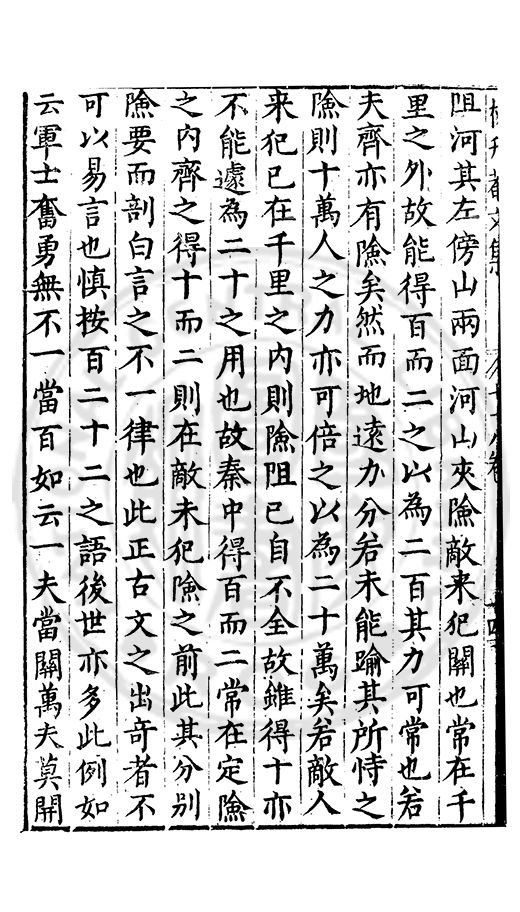 阻河其左傍山兩面河山夾險敵来犯關也常在千
里之外故能得百而二之以為二百其力可常也若
夫齊亦有險矣然而地遠力分若未能踰其所恃之
險則十萬人之力亦可倍之以為二十萬矣若敵人
来犯已在千里之內則險阻已自不全故雖得十亦
不能遽為二十之用也故秦中得百而二常在定險
之內齊之得十而二則在敵未犯險之前此其分別
險要而剖白言之不一律也此正古文之出奇者不
可以易言也慎按百二十二之語後世亦多此例如
云軍士奮勇無不一當百如云一夫當關萬夫莫開